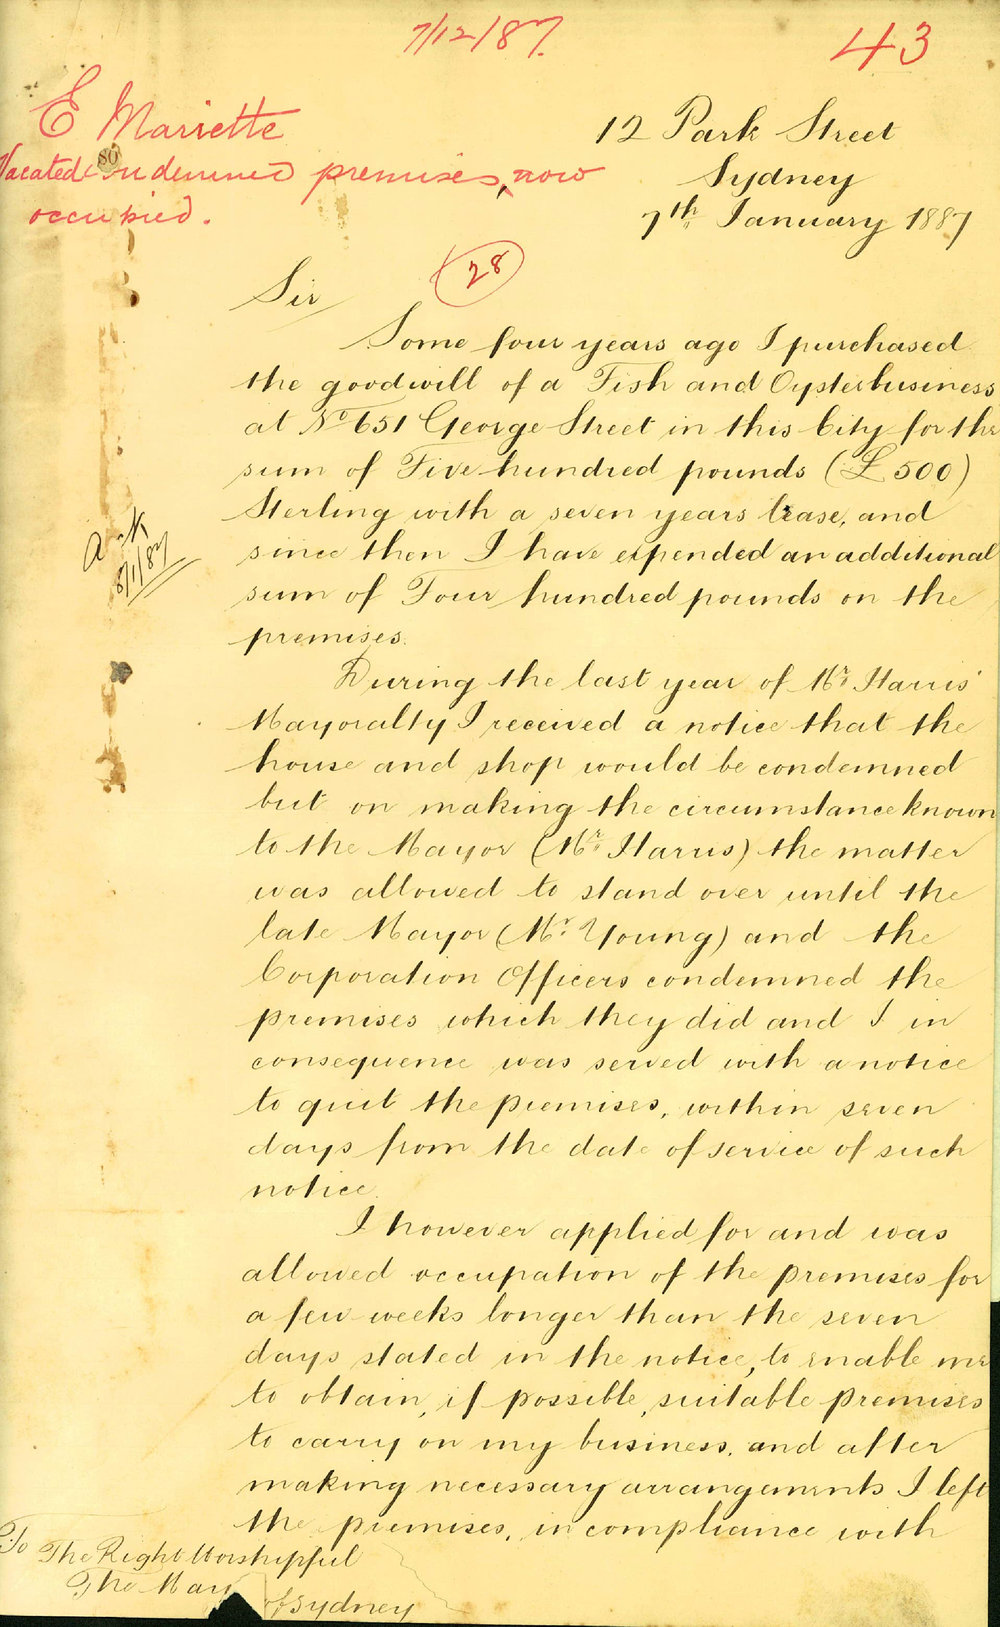 7/12/87.
43
E Mariette
Vacated condemned premises, now
occupied.
80
12 Park Street
Sydney
7th January 1887
28
Sir
Some four years ago I purchased
the goodwill of a Fish and Oyster business
at No 651 George Street in this City for the
sum of Five hundred pounds (£500)
Sterling with a seven years lease, and
since then I have expended an additional
sum of Four hundred pounds on the
premises.
8/1/87
During the last year of Mr. Harris'
Mayoralty I received a notice that the
house and shop would be condemned
but on making the circumstance known
to the Mayor (Mr. Harris) the matter
was allowed to stand over until the
late Mayor (Mr. Young) and the
Corporation Officers condemned the
premises which they did and I in
consequence was served with a notice
to quit the premises, within seven
days from the date of service of such
notice.
I however applied for and was
allowed occupation of the premises for
a few weeks longer than the seven
days stated in the notice, to enable me
to obtain, if possible, suitable premises
to carry on my business, and after
making necessary arrangements I left
the premises, in compliance with
To
The Right Worshipful
The May of Sydney